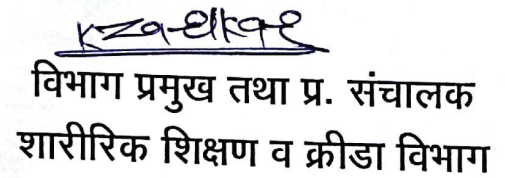 विभाग प्रमुख तथा प्र. संचालक
शारीरिक शिक्षण व क्रीडा विभाग